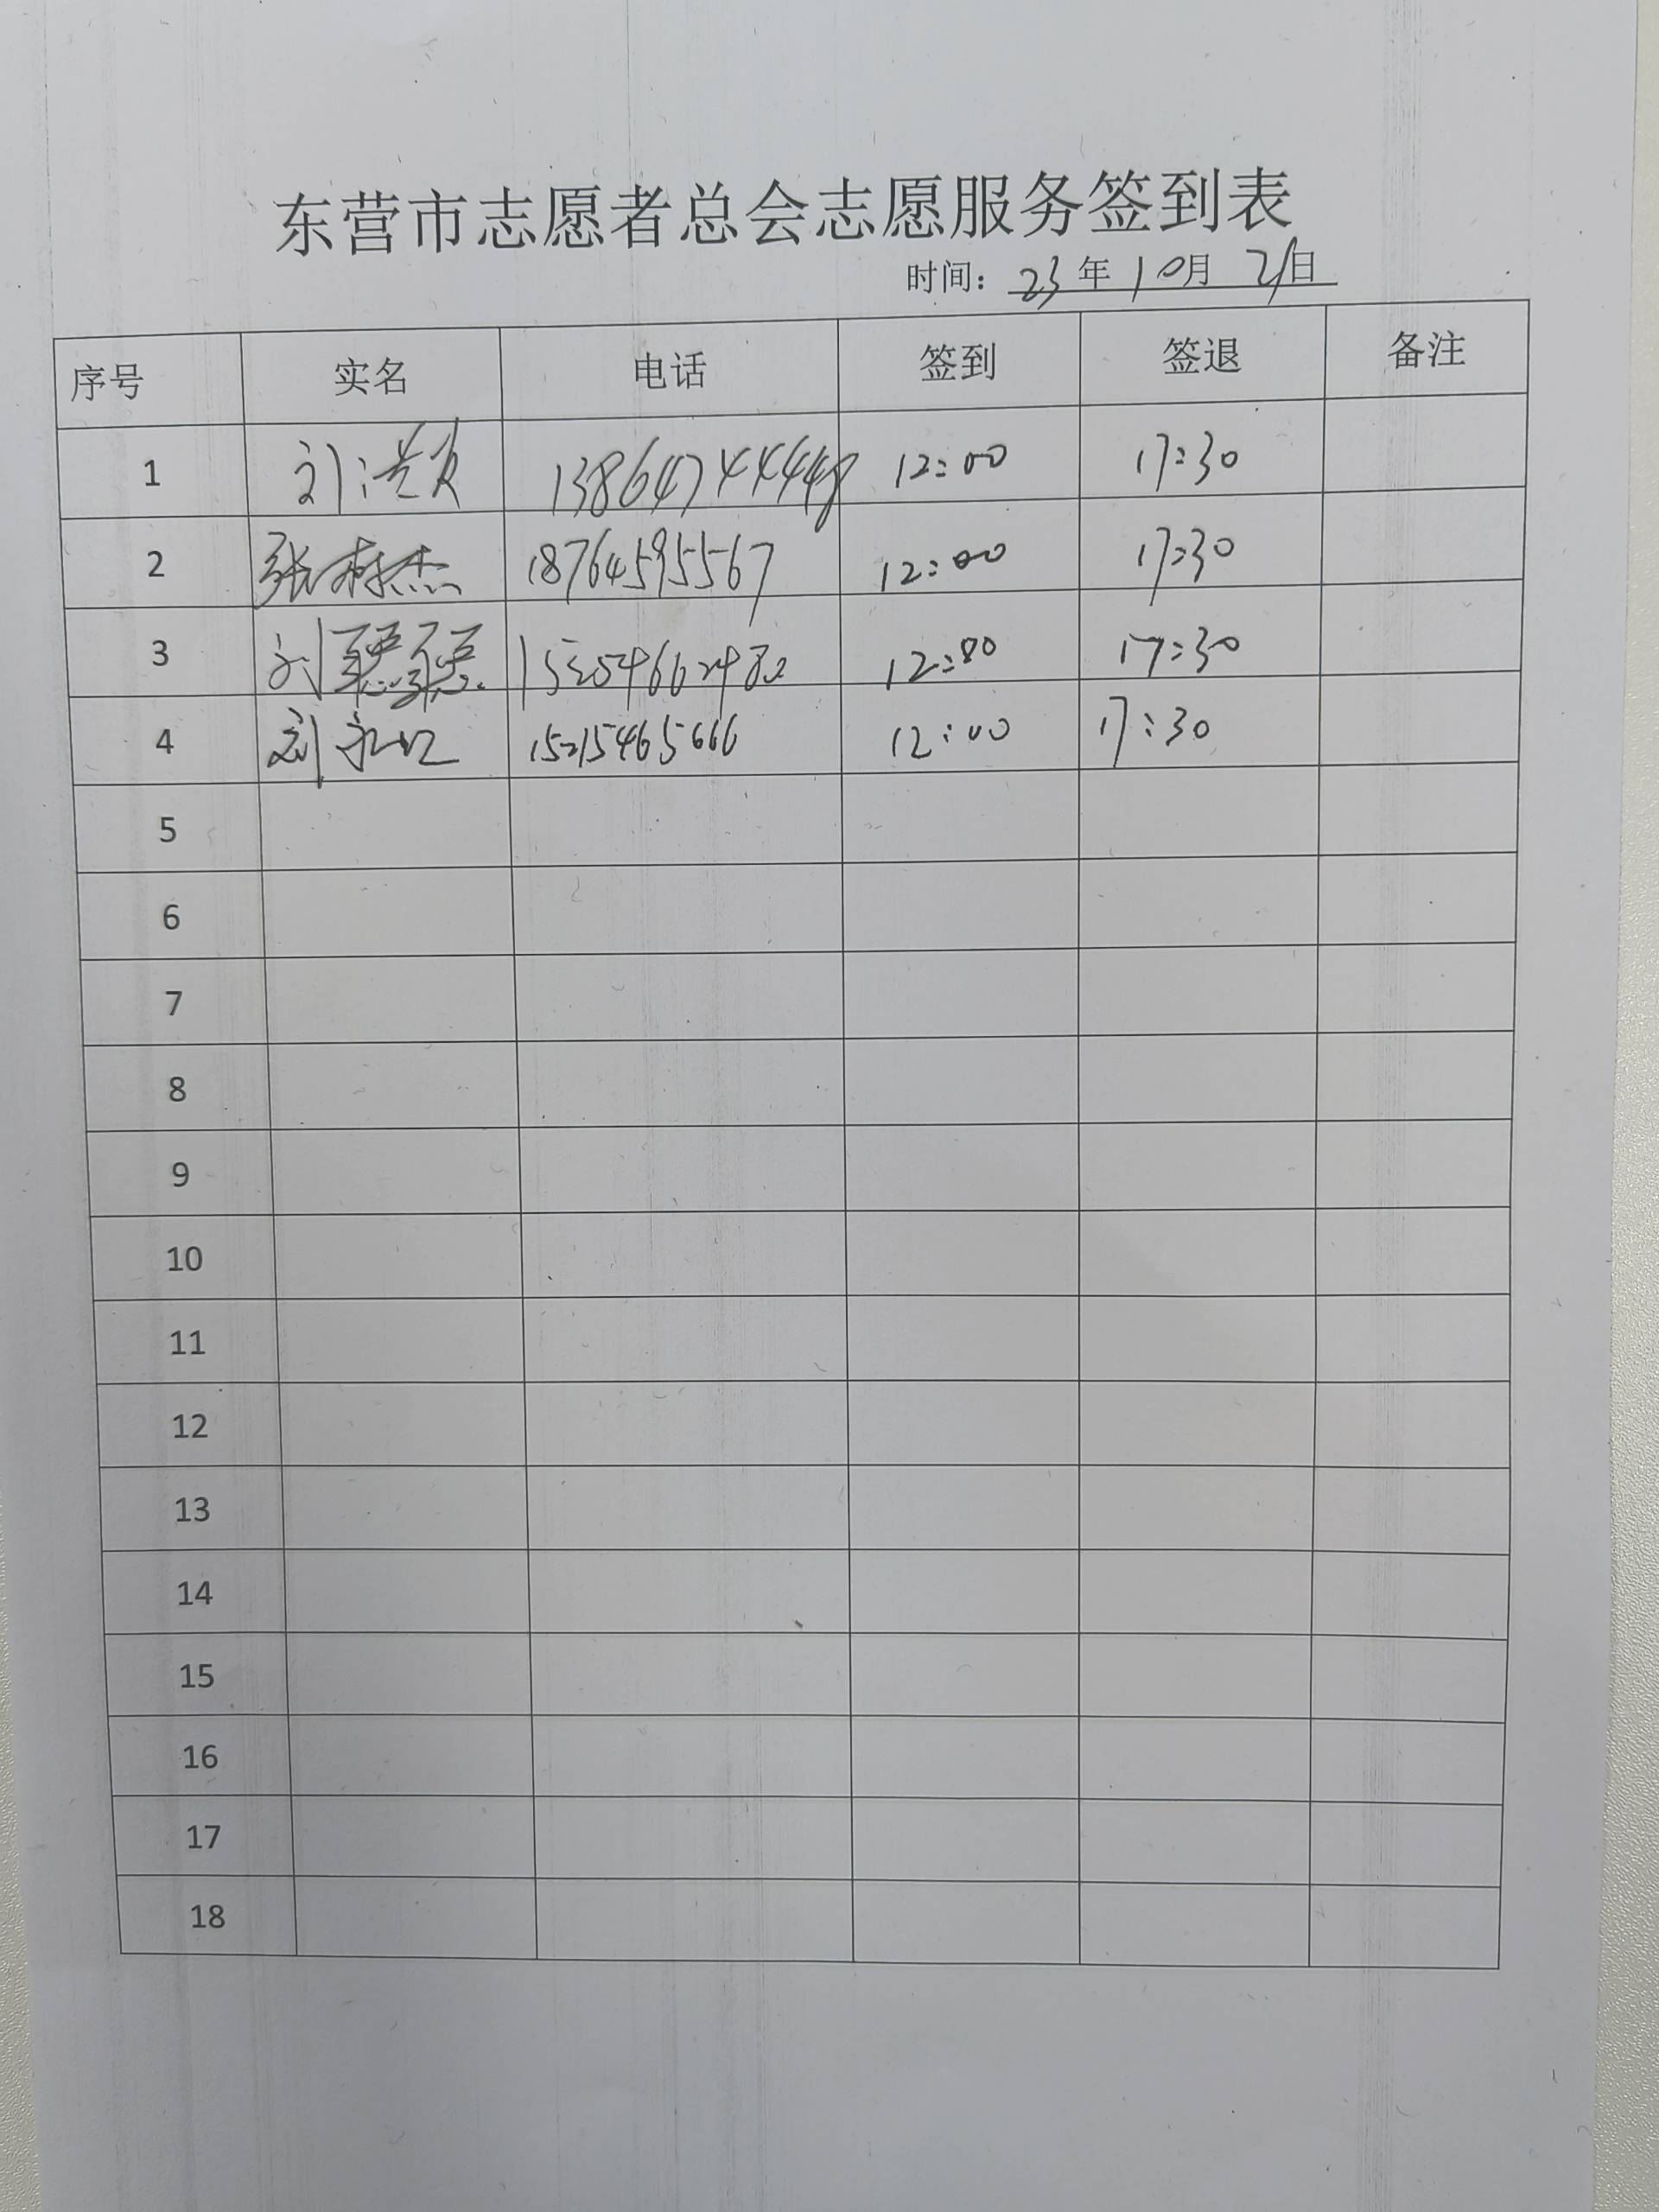 东营市志愿者总会志愿服务签到表
时间：23年10月21日
序号 实名 电话 签到 签退 备注
1 刘 12:00 17:30
2 张树杰 18764595567 12:00 17:30
3 刘聪聪 12:00 17:30
4 刘永 15215465666 12:00 17:30
5
6
7
8
9
10
11
12
13
14
15
16
17
18